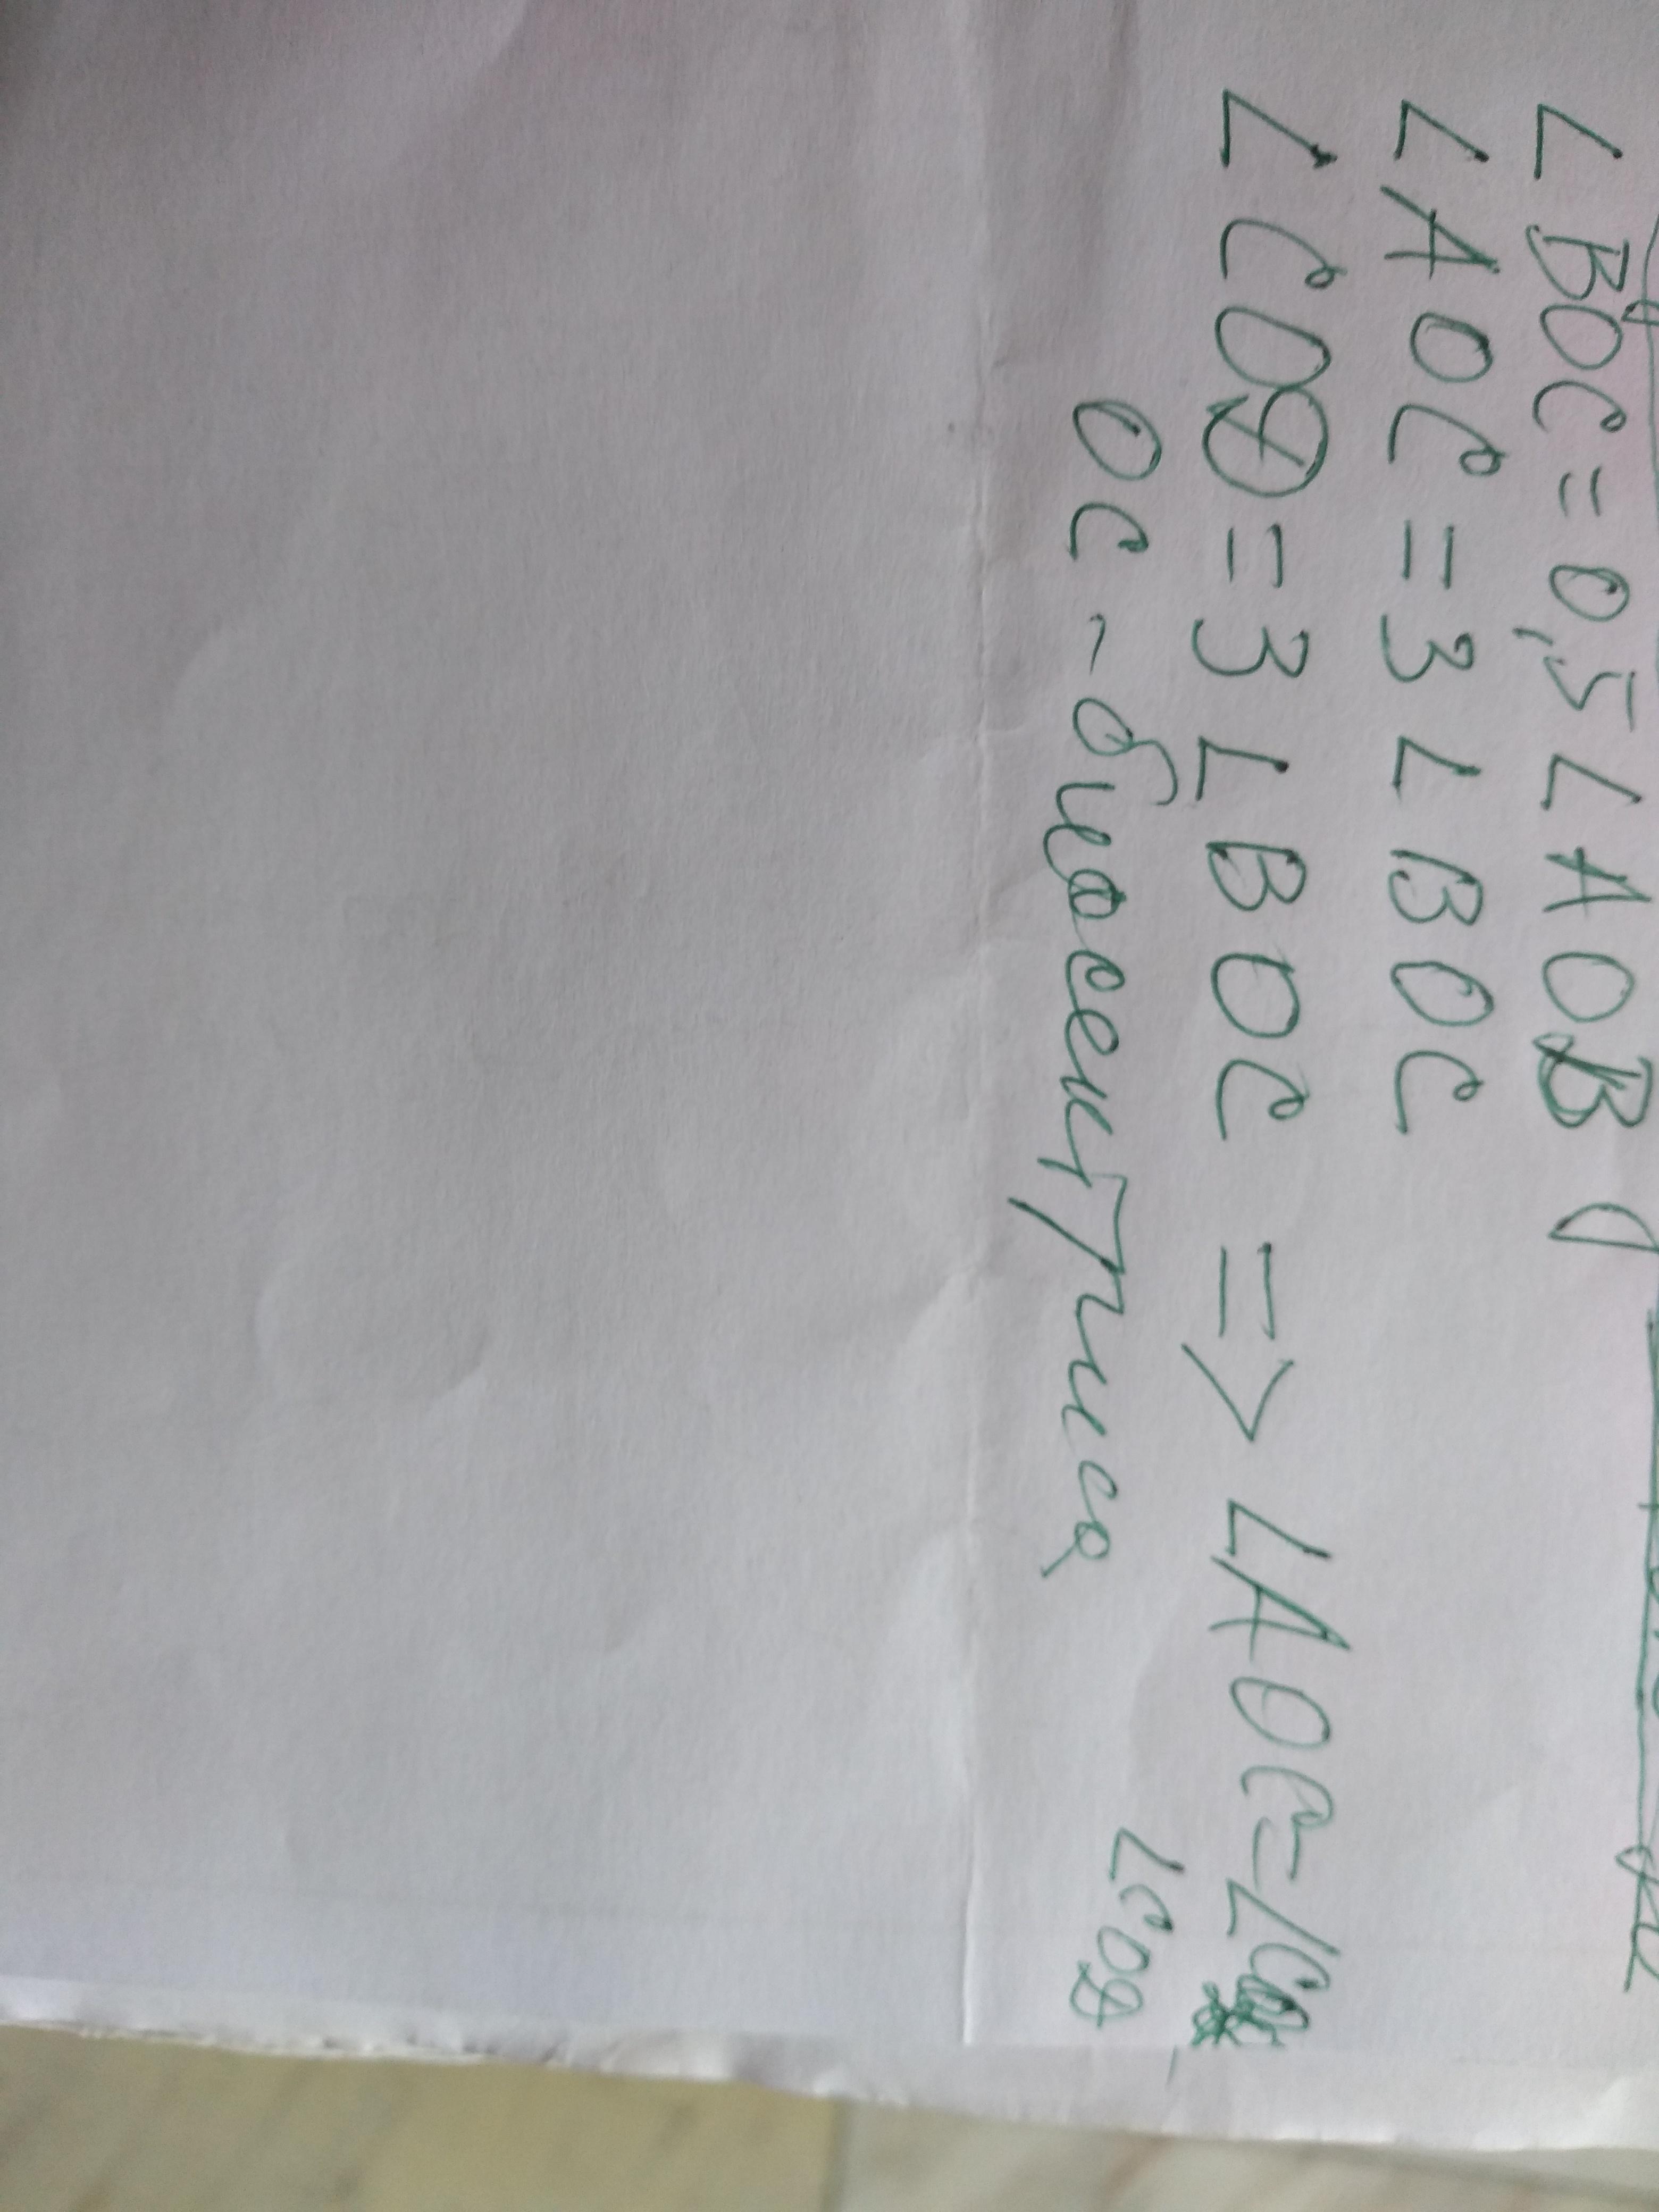 ∠BOC = 0,5 ∠AOB
∠AOC = 3 ∠BOC
∠CO = 3 ∠BOC => ∠AOC =
OC - биссектриса